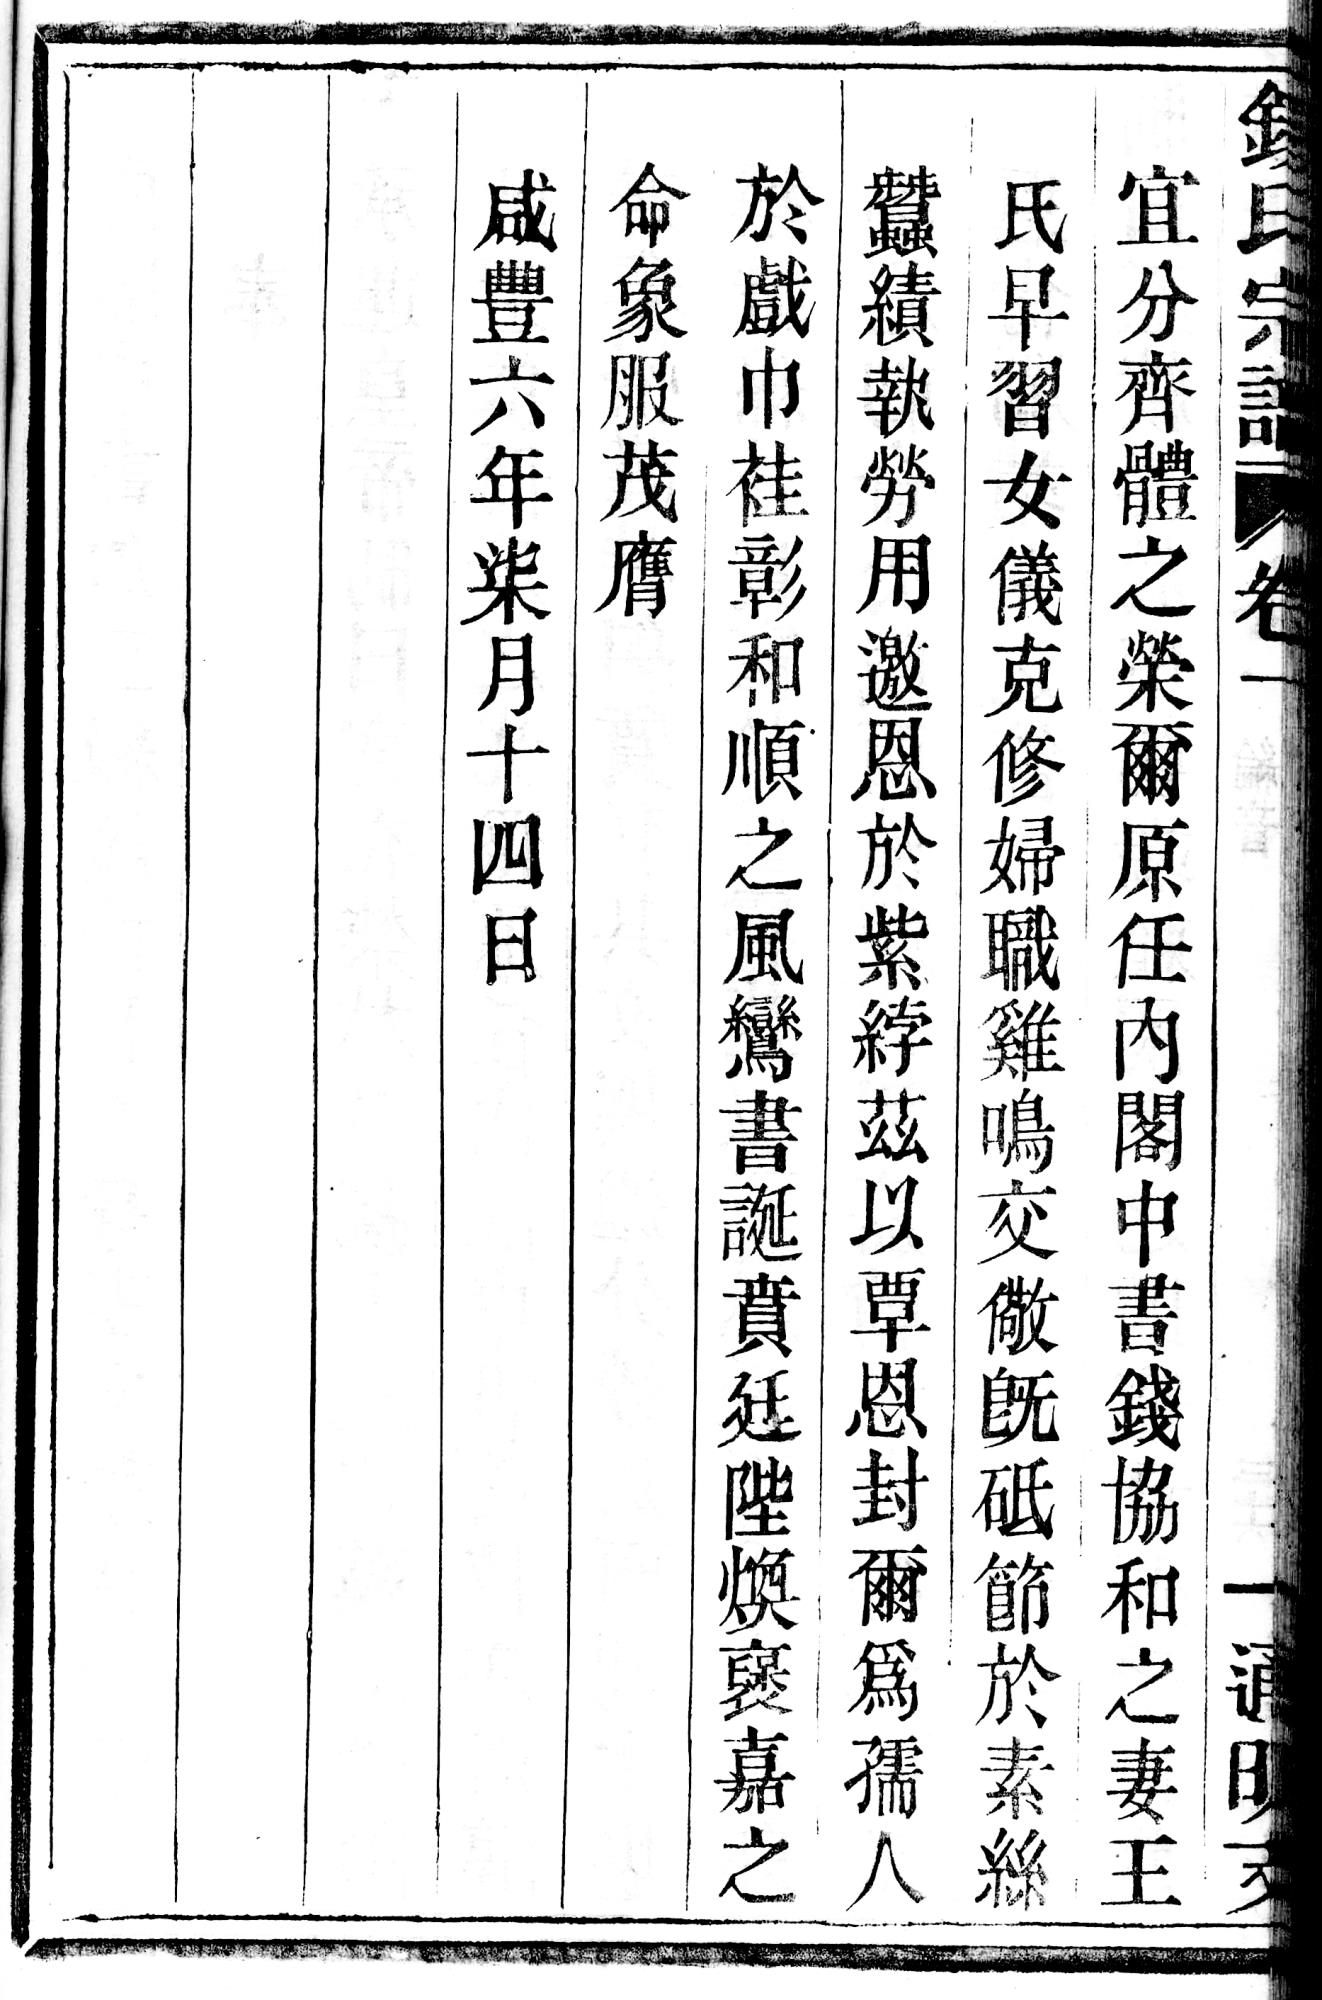 錢氏宗譜 卷一 一 通明堂
宜分齊體之榮爾原任內閣中書錢協和之妻王
氏早習女儀克修婦職雞鳴交儆旣砥節於素絲
蠶績執勞用邀恩於紫綍茲以覃恩封爾爲孺人
於戲巾袿彰和順之風鸞書誕賁廷陛煥褒嘉之
命象服茂膺
咸豐六年柒月十四日